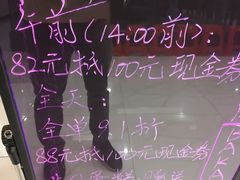 午前(14:00前):
82元抵100元现金券
全天:
全单9.1折
88元抵100元现金券